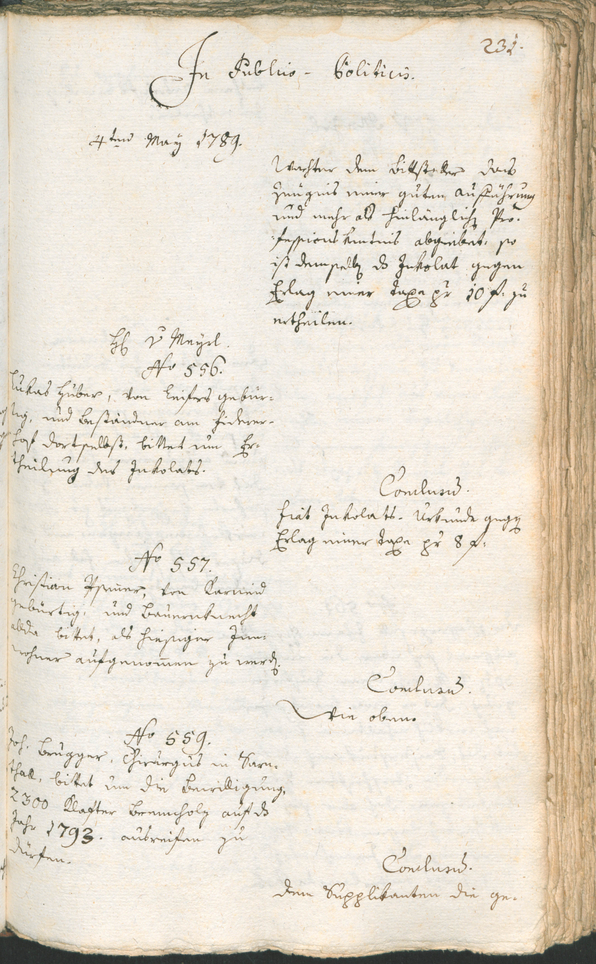 231.
In Publico-Politicis.
4ten May 1789.
Wachter dem Bittsteller das
Zeugnis einer guten Aufführung
und mehr als hinlänglich Pro-
fessions käntnis abgiebet, so
ist demselb ds Inkolat gegen
Erlag einer Taxe pr 10 f. zu
ertheilen.
H v Mayrl.
No 556.
Lukas Huber, von Leifers gebür-
tig, und Beständner am
dortselbst, bittet um Er-
theilung des Inkolats.
Conclusum.
Fiat Inkolats-Urkunde gegen
Erlag einer Taxe pr 8 f.
No 557.
Christian von Karneid
gebürtig, und Bauernknecht
alda bittet, als hiesiger Inn-
wohner aufgenommen zu werd.
Conclusum.
Wie oben.
No 559.
Joh. Brugger, Chirurgus in Sarn-
thall, bittet um die Bewilligung,
2300 Klafter Brennholz auf ds
Jahr 1793. ausreifen zu
dürfen.
Conclusum.
Dem Supplikanten die ge-